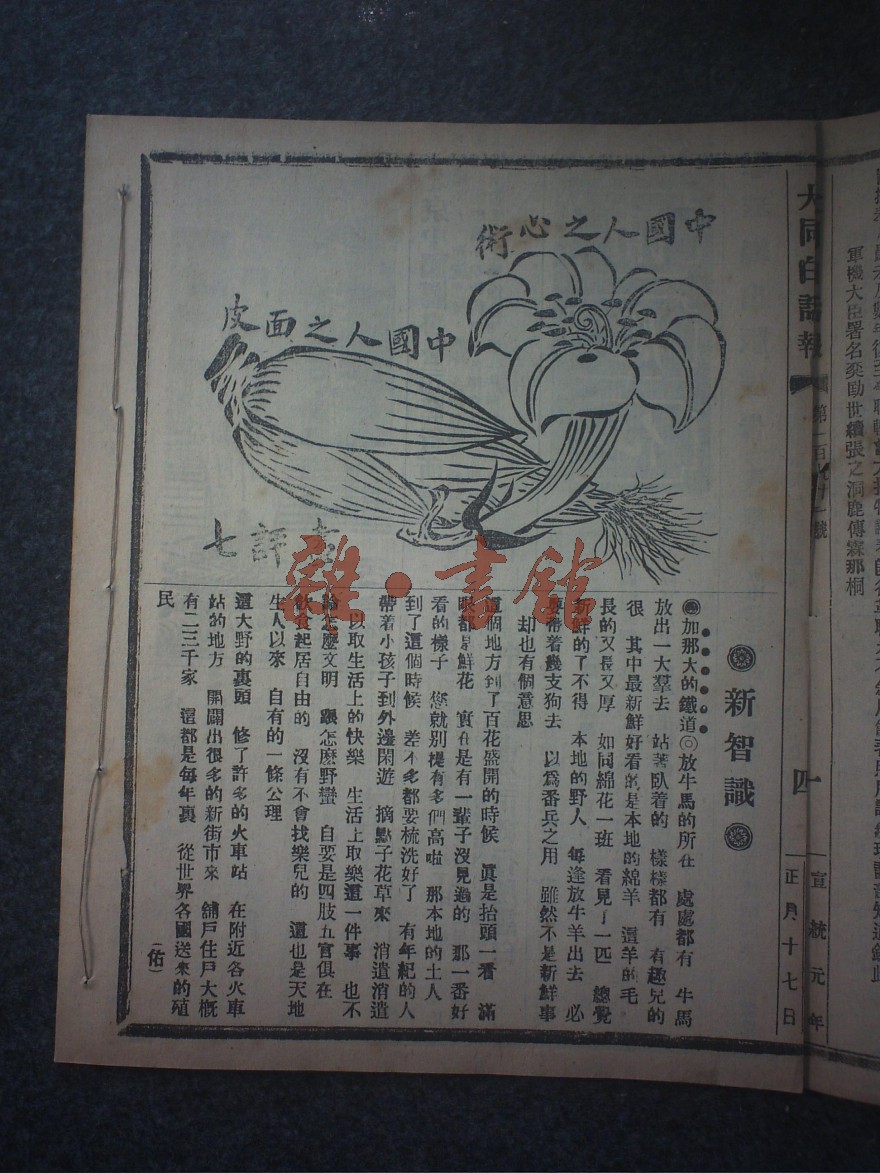 大同白話報
第一百九十一號
四
宣統元年
正月十七日
軍機大臣署名奕劻世續張之洞鹿傳霖那桐
中國人之心術
中國人之面皮
七評畫
雜·書館
新智識
加那大的鐵道◎放牛馬的所在 處處都有 牛馬
放出一大羣去 站著臥着的 樣樣都有 有趣兒的
很 其中最新鮮好看的是本地的綿羊 這羊的毛
長的又長又厚 如同綿花一班 看見了一匹 總覺
新鮮的了不得 本地的野人 每逢放牛羊出去 必
要帶着幾支狗去 以爲番兵之用 雖然不是新鮮事
却也有個意思
這個地方到了百花盛開的時候 眞是抬頭一看 滿
眼都是鮮花 實在是有一輩子沒見過的 那一番好
看的樣子 您就别提有多們高啦 那本地的土人
到了這個時候 差不多都要梳洗好了 有年紀的人
帶着小孩子到外邊閑遊 摘點子花草來 消遣消遣
以取生活上的快樂 生活上取樂這一件事 也不
論怎麽文明 跟怎麽野蠻 自要是四肢五官俱在
飲食起居自由的 沒有不會找樂兒的 這也是天地
生人以來 自有的一條公理
這大野的裏頭 修了許多的火車站 在附近各火車
站的地方 開闢出很多的新街市來 舖戶住戶大概
有二三千家 這都是每年裏 從世界各國送來的殖
民
(佑)